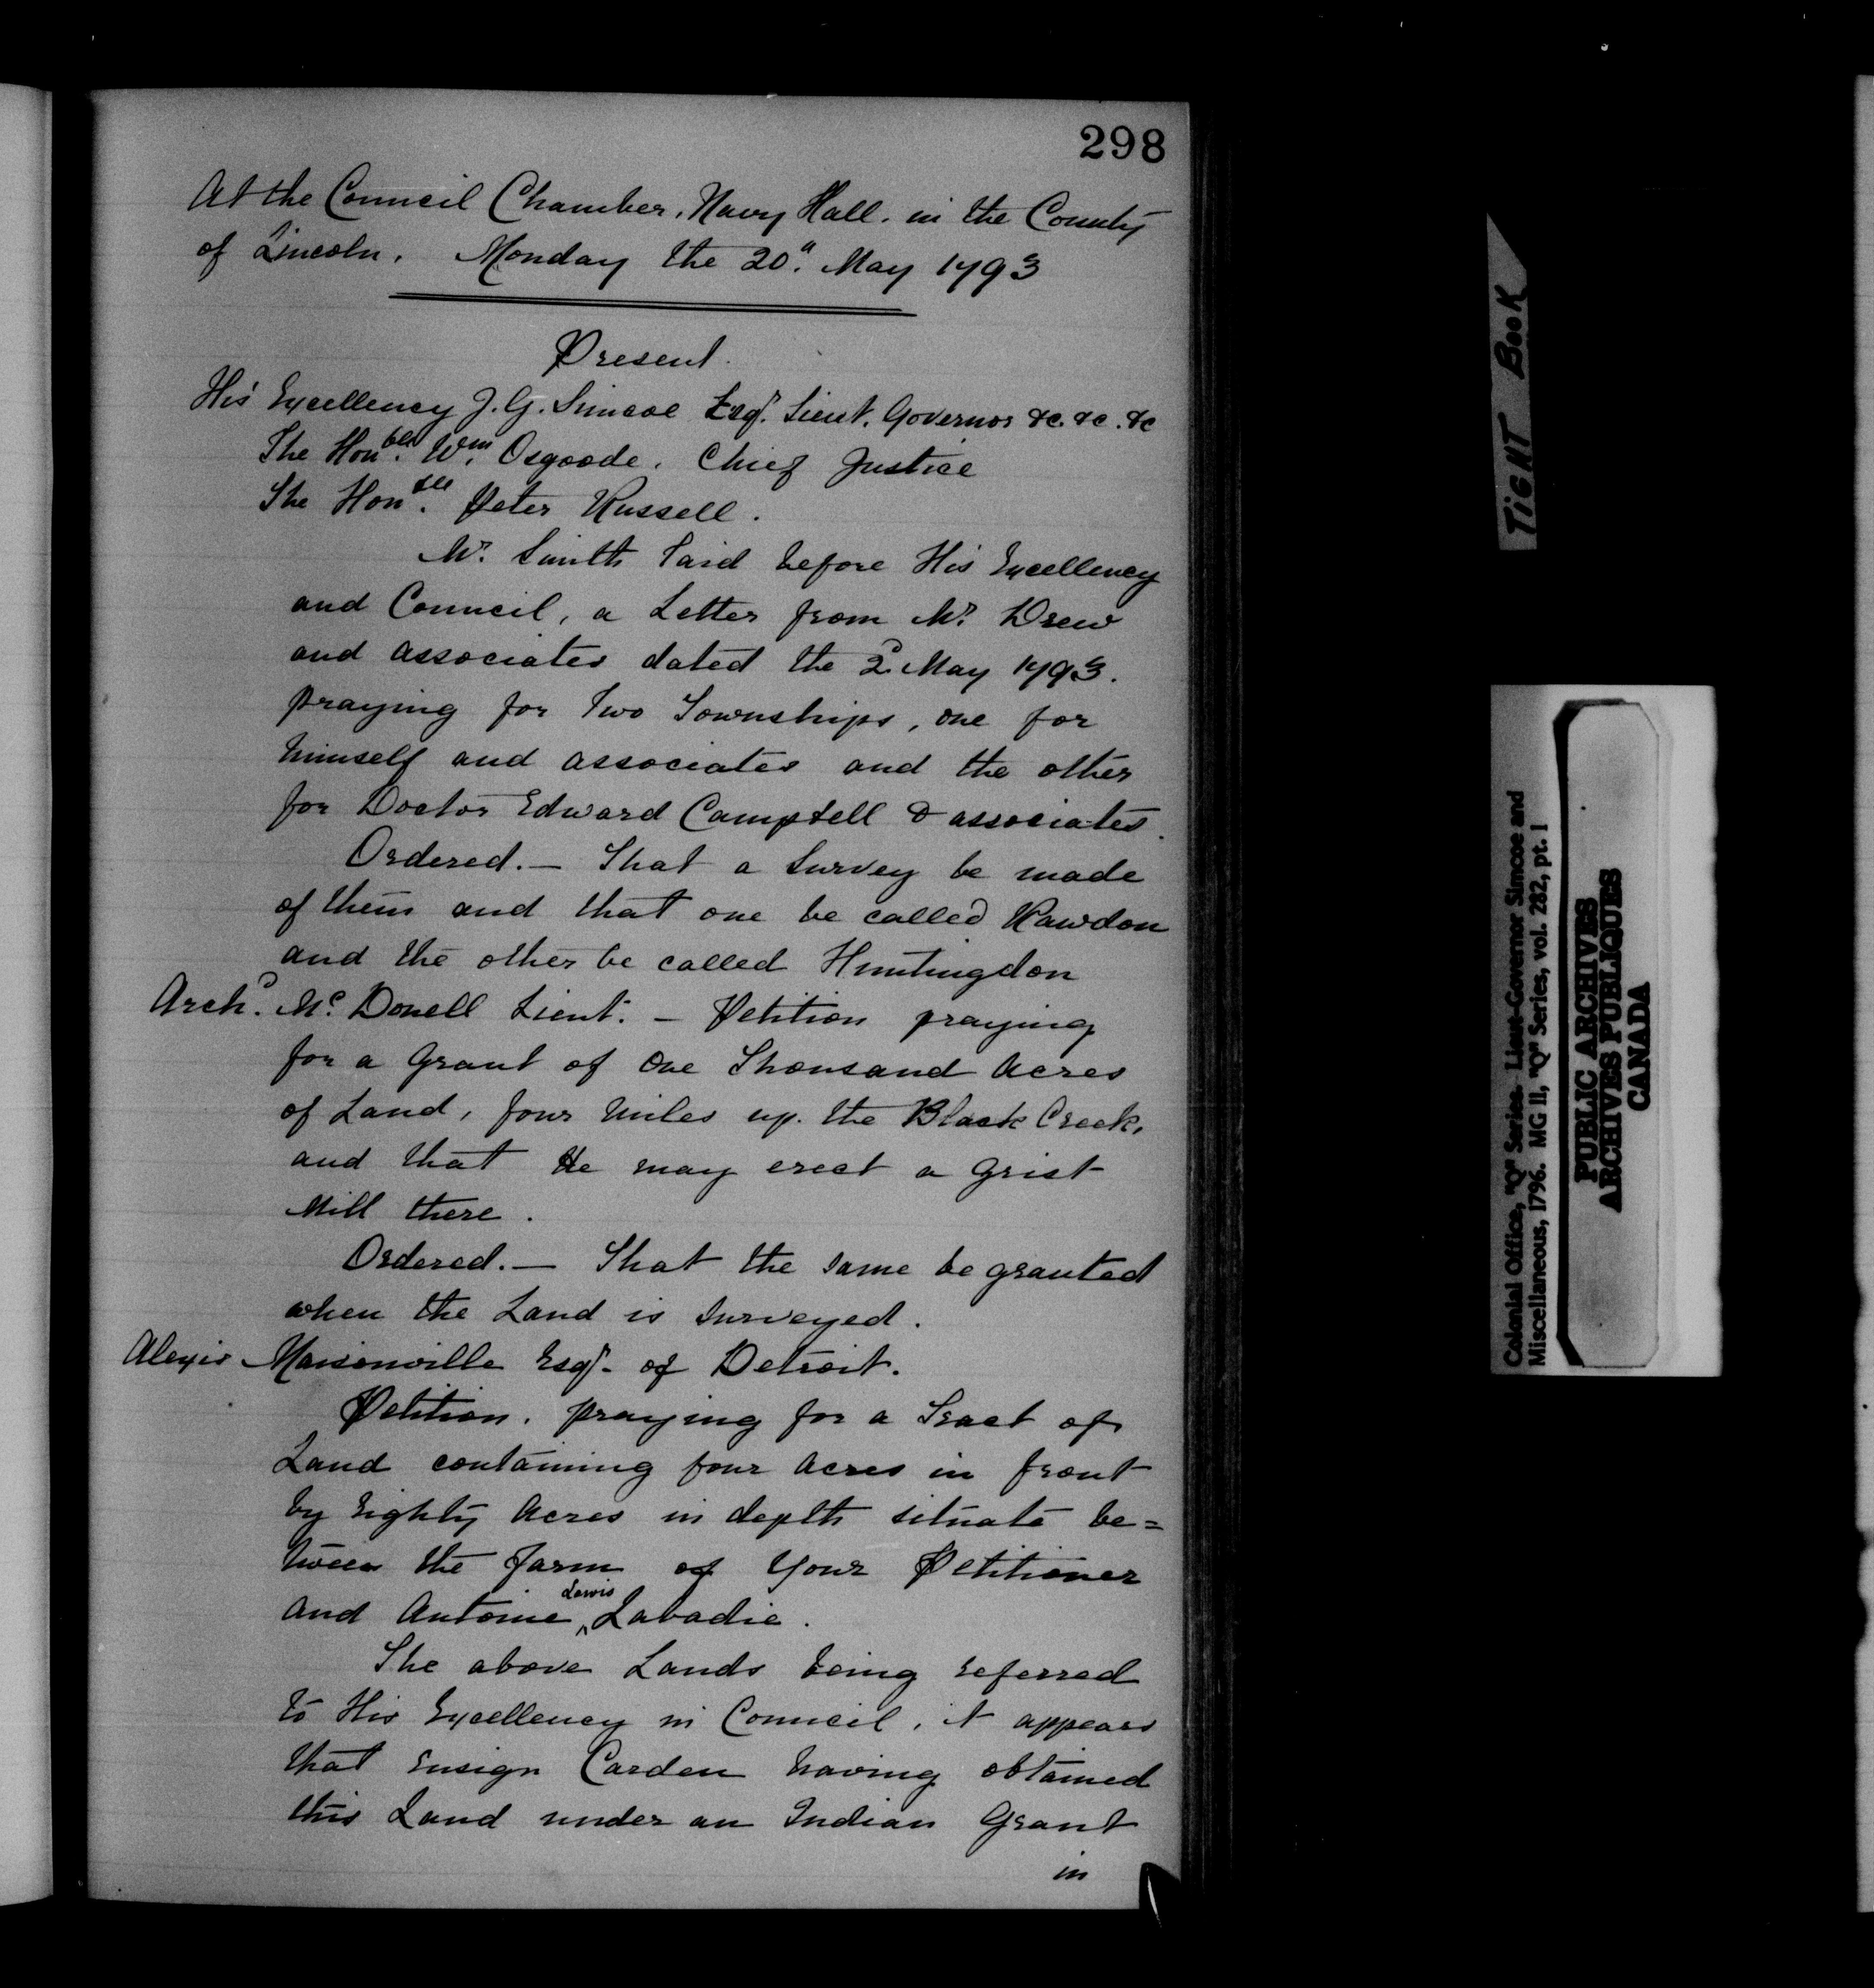 298
At the Council Chamber, Navy Hall. in the County
of Lincoln. Monday the 20.th May 1793
Present.
His Excellency J. G. Simcoe Esqr. Lieut. Governor &c. &c. &c
The Honble. Wm. Osgoode. Chief Justice
The Honble. Peter Russell.
Mr. Smith laid before His Excellency
and Council, a Letter from Mr. Drew
and associates dated the 2d May 1793.
praying for Two Townships, one for
himself and associates and the other
for Doctor Edward Campbell & associates.
Ordered. — That a Survey be made
of them and that one be called Rawdon
and the other be called Huntingdon
Archd. Mc. Donell Lieut. — Petition praying
for a Grant of One Thousand Acres
of Land, four Miles up the Black Creek,
and that He may erect a Grist
Mill there.
Ordered. — That the same be granted
when the Land is Surveyed.
Alexis Maisonville Esqr. of Detroit.
Petition. praying for a Tract of
Land containing four Acres in front
by Eighty Acres in depth situate be=
tween the Farm of Your Petitioner
and Antoine ^Lewis Labadie.
The above Lands being referred
to His Excellency in Council, it appears
that Ensign Carden having obtained
this Land under an Indian Grant
in
TIGHT BOOK
Colonial Office, "Q" Series. Lieut-Governor Simcoe and
Miscellaneous, 1796. MG 11, "Q" Series, vol. 282, pt. 1
PUBLIC ARCHIVES
ARCHIVES PUBLIQUES
CANADA